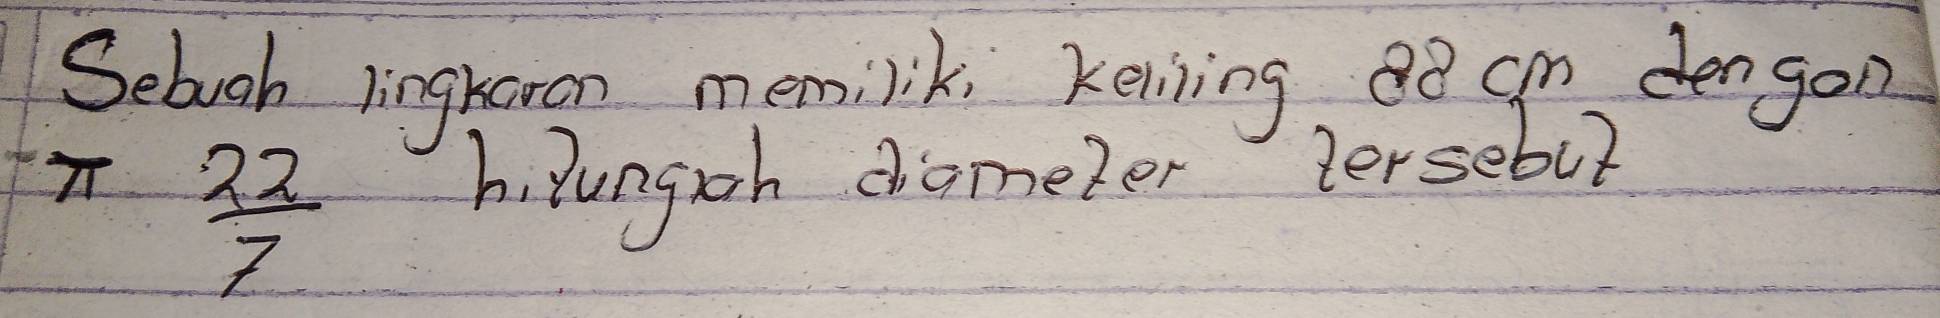 Sebuah lingkaran memiliki keliling 88 cm dengan
π 22/7 hitunglah diameter tersebut